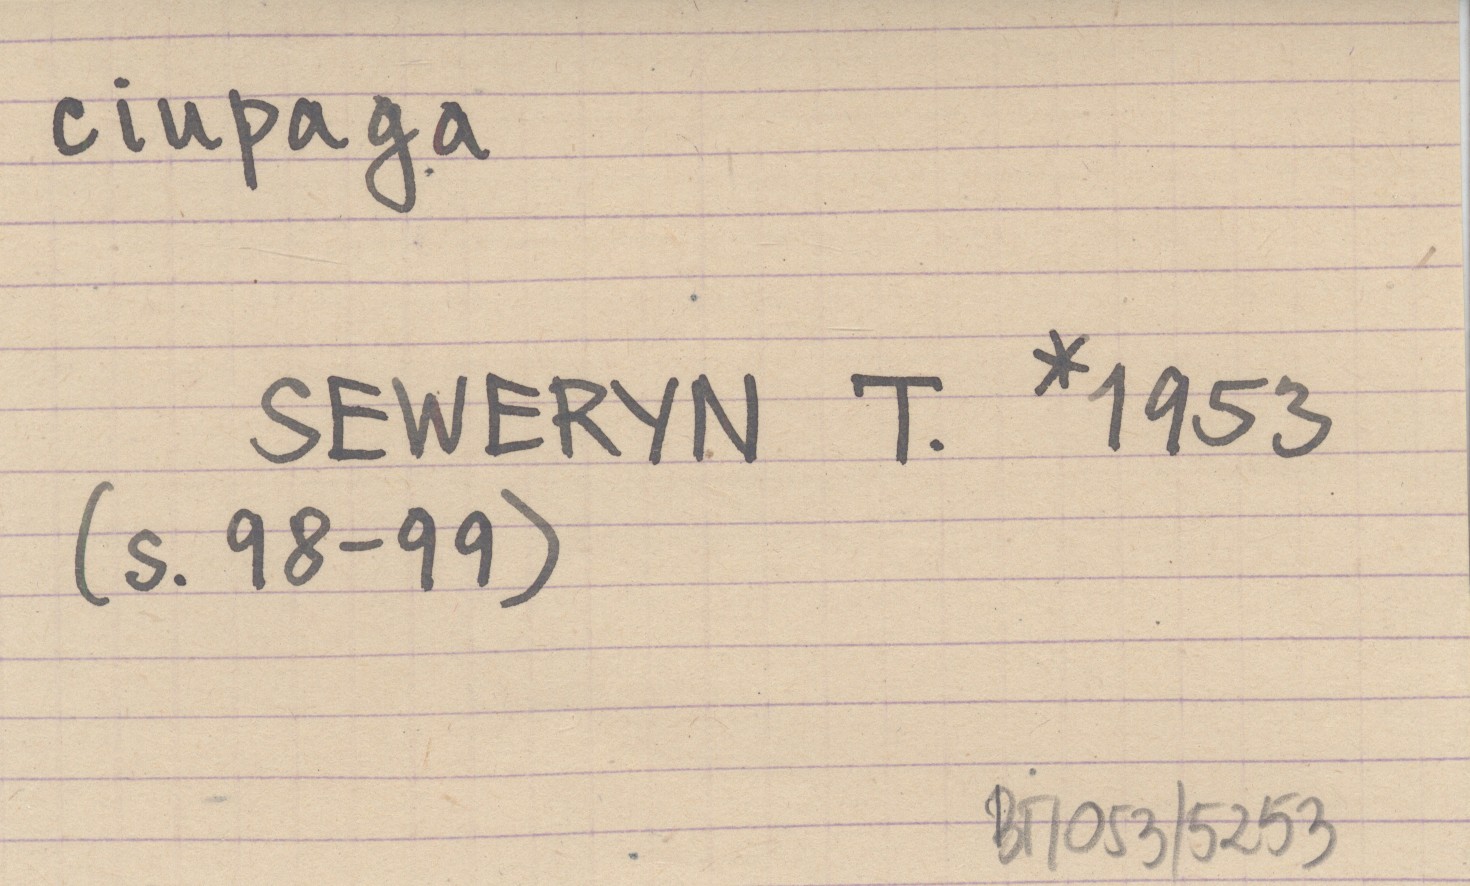 ciupaga
SEWERYN T. *1953
(s. 98-99)
ВГ/053/5253